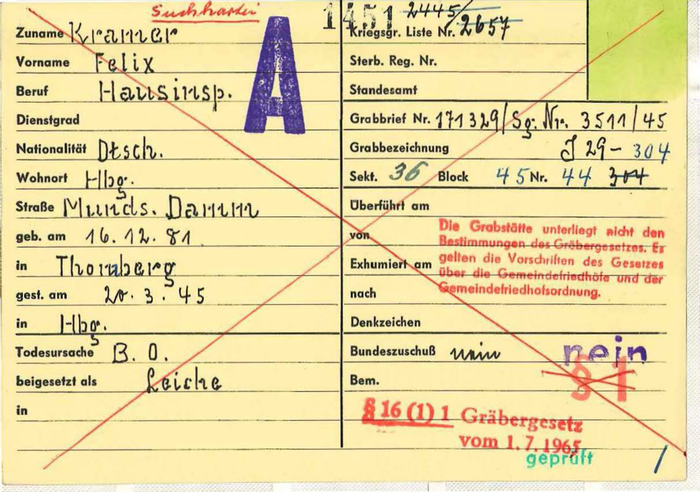 Suchkartei
A
1451 2445/
Zuname Kramer
Kriegsgr. Liste Nr. 2657
Vorname Felix
Sterb. Reg. Nr.
Beruf Hausinsp.
Standesamt
Dienstgrad
Grabbrief Nr. 171329/Sg. Nr. 3511/45
Nationalität Dtsch.
Grabbezeichnung J 29-304
Wohnort Hbg.
Sekt. 36 Block 45 Nr. 44 304
Straße Munds. Damm
Überführt am
geb. am 16.12.81
von
in Thornberg
Exhumiert am
Die Grabstätte unterliegt nicht den
Bestimmungen des Gräbergesetzes. Es
gelten die Vorschriften des Gesetzes
über die Gemeindefriedhöfe und der
Gemeindefriedhofsordnung.
gest. am 20.3.45
nach
in Hbg.
Denkzeichen
Todesursache B.O.
Bundeszuschuß nein nein
beigesetzt als Leiche
Bem. § 1
in
§ 16 (1) 1 Gräbergesetz
vom 1.7.1965
geprüft